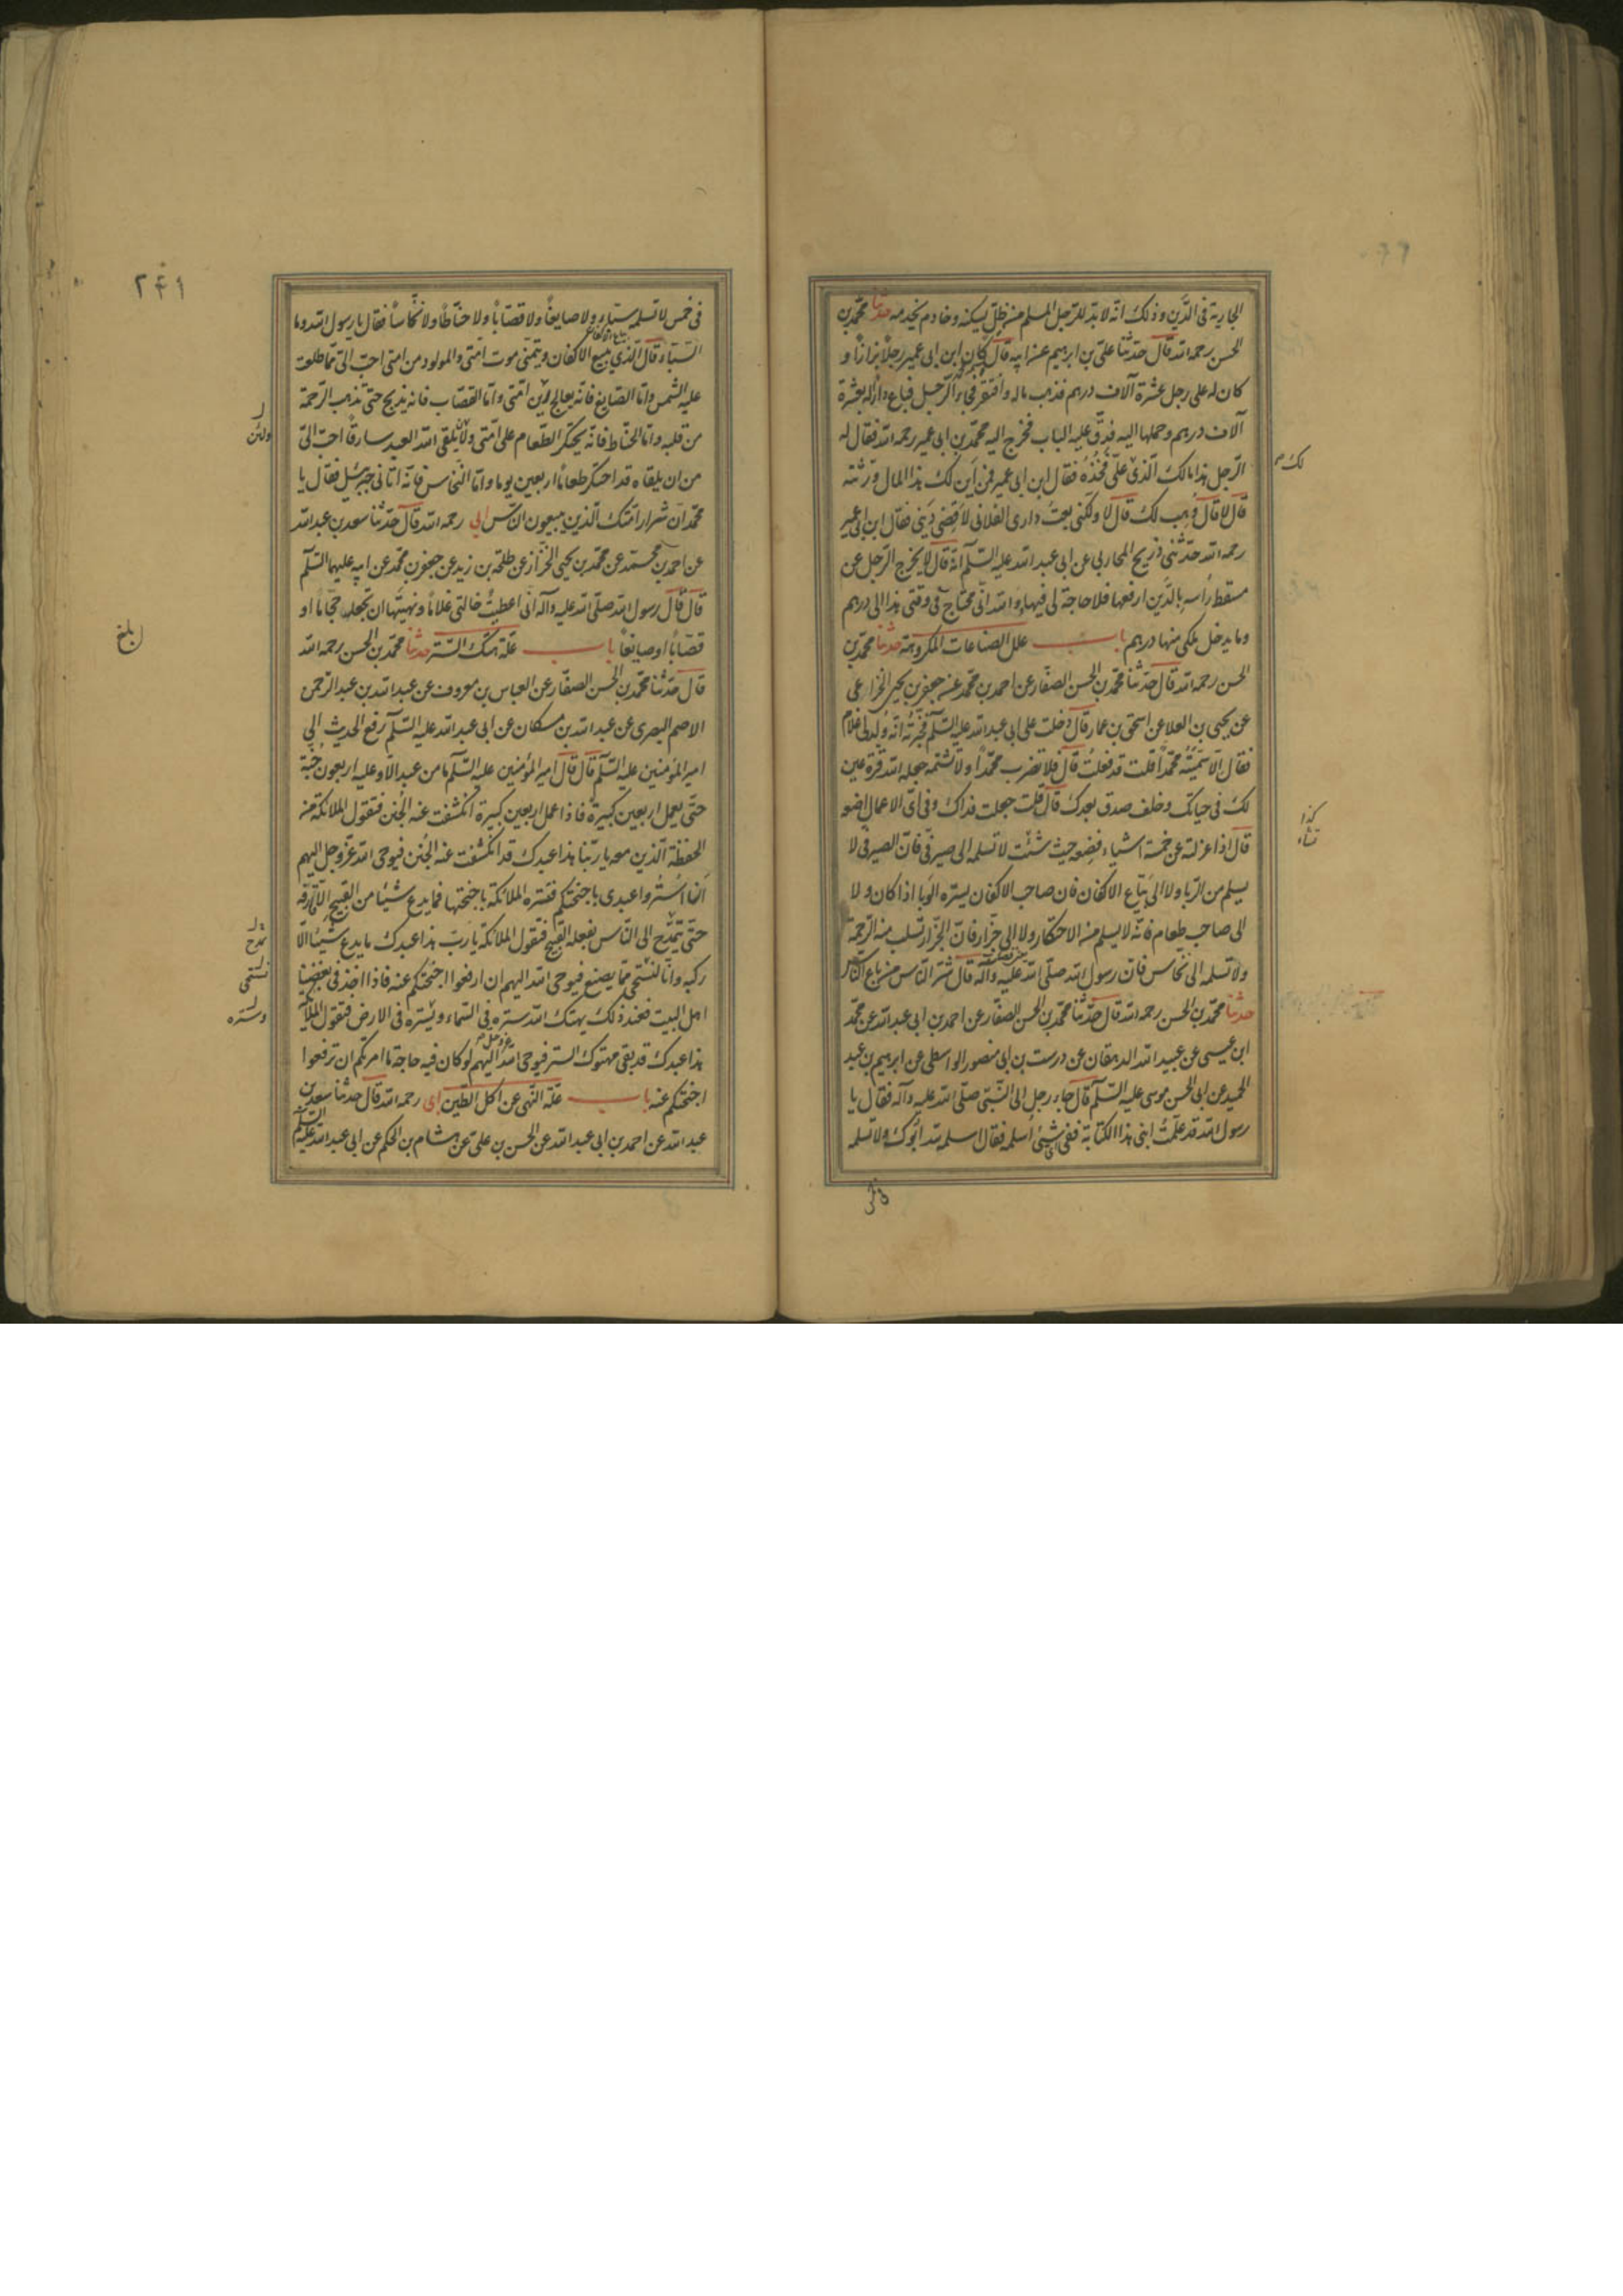 الجارية فى الدين وذلك انه لا بد للرجل المسلم من ظل يسكنه وخادم يخدمه حدثنا محمد بن
الحسن رحمه الله قال حدثنا على بن ابرهيم عن ابيه قال كان ابن ابى عمير رجلا بزازا و
كان له على رجل عشرة آلاف درهم فذهب ماله وافتقر فجاء الرجل فباع دارا له بعشرة
آلاف درهم وحملها اليه فدق عليه الباب فخرج اليه محمد بن ابى عمير رحمه الله فقال له
الرجل هذا مالك الذى على فخذه فقال ابن ابى عمير فمن اين لك هذا المال ورثته
لك
قال لا قال وهب لك قال لا ولكنى بعت دارى الفلانى لاقضى دينى فقال ابن ابى عمير
رحمه الله حدثنى ذريح المحاربى عن ابى عبد الله عليه السلم انه قال لا يخرج الرجل عن
مسقط رأسه بالدين ارفعها فلا حاجة لى فيها والله انى محتاج فى وقتى هذا الى درهم
وما يدخل ملكى منها درهم باب علل الصناعات المكروهة حدثنا محمد بن
الحسن رحمه الله قال حدثنا محمد بن الحسن الصفار عن احمد بن محمد عن جعفر بن يحيى الخزاعى
عن يحيى بن العلا عن اسحق بن عمار قال دخلت على ابى عبد الله عليه السلم فخبرته انه ولد لى غلام
فقال الا سميته محمدا قلت قد فعلت قال فلا تضرب محمدا ولا تشتمه جعله الله قرة عين
لك فى حياتك وخلف صدق بعدك قال قلت جعلت فداك وفى اى الاعمال اضعه
قال اذا عزلته عن خمسة اشياء فضعه حيث شئت لا تسلمه الى صيرفى فان الصيرفى لا
كذا
تشاء
يسلم من الربا ولا الى بياع الاكفان فان صاحب الاكفان يسره الوبا اذا كان ولا
الى صاحب طعام فانه لا يسلم من الاحتكار ولا الى جزار فان الجزار تسلب منه الرحمة
ولا تسلمه الى نخاس فان رسول الله صلى الله عليه وآله قال شر الناس من باع الناس
حدثنا محمد بن الحسن رحمه الله قال حدثنا محمد بن الحسن الصفار عن احمد بن ابى عبد الله عن محمد
ابن عيسى عن عبيد الله الدهقان عن درست بن ابى منصور الواسطى عن ابرهيم بن عبد
الحميد عن ابى الحسن موسى عليه السلم قال جاء رجل الى النبى صلى الله عليه وآله فقال يا
رسول الله قد علمت ابنى هذا الكتابة ففى اى شئ اسلمه فقال اسلمه لله ابوك ولا تسلمه
فى خمس
٢٤١
فى خمس لا تسلمه سباء ولا صايغا ولا قصابا ولا حناطا ولا نخاسا فقال يا رسول الله وما
السباء قال الذى يبيع الاكفان ويتمنى موت امتى وللمولود من امتى احب الى مما طلعت
عليه الشمس واما الصايغ فانه يعالج غبن امتى واما القصاب فانه يذبح حتى تذهب الرحمة
من قلبه واما الحناط فانه يحتكر الطعام على امتى ولان يلقى الله العبد سارقا احب الى
ولئن
من ان يلقاه قد احتكر طعاما اربعين يوما واما النخاس فانه اتانى جبرئيل فقال يا
محمد ان شرار امتك الذين يبيعون الناس ابى رحمه الله قال حدثنا سعد بن عبد الله
عن احمد بن محمد عن محمد بن يحيى الخزاز عن طلحة بن زيد عن جعفر بن محمد عن ابيه عليهما السلم
قال قال رسول الله صلى الله عليه وآله انى اعطيت خالتى غلاما ونهيتها ان تجعله حجاما او
قصابا او صايغا باب علة هتك الستر حدثنا محمد بن الحسن رحمه الله
بلغ
قال حدثنا محمد بن الحسن الصفار عن العباس بن معروف عن عبد الله بن عبد الرحمن
الاصم البصرى عن عبد الله بن مسكان عن ابى عبد الله عليه السلم رفع الحديث الى
امير المؤمنين عليه السلم قال قال امير المؤمنين عليه السلم ما من عبد الا وعليه اربعون جنة
حتى يعمل اربعين كبيرة فاذا عمل اربعين كبيرة انكشفت عنه الجنن فتقول الملائكة من
الحفظة الذين معه يا ربنا هذا عبدك قد انكشفت عنه الجنن فيوحى الله عز وجل اليهم
ان استروا عبدى باجنحتكم فتستره الملائكة باجنحتها فما يدع شيئا من القبيح الا قارفه
حتى يتمدح الى الناس بفعله القبيح فتقول الملائكة يا رب هذا عبدك ما يدع شيئا الا
تمدح
ركبه وانا لنستحى مما يصنع فيوحى الله اليهم ان ارفعوا اجنحتكم عنه فاذا اخذ فى بغضنا
نستحى
اهل البيت فعند ذلك يهتك الله ستره فى السماء ويستره فى الارض فتقول الملائكة
وستره
هذا عبدك قد بقى مهتوك الستر فيوحى الله عز وجل اليهم لو كان فيه حاجة ما امرتكم ان ترفعوا
اجنحتكم عنه باب علة النهى عن اكل الطين ابى رحمه الله قال حدثنا سعد بن
عبد الله عن احمد بن ابى عبد الله عن الحسن بن على عن هشام بن الحكم عن ابى عبد الله عليه السلم